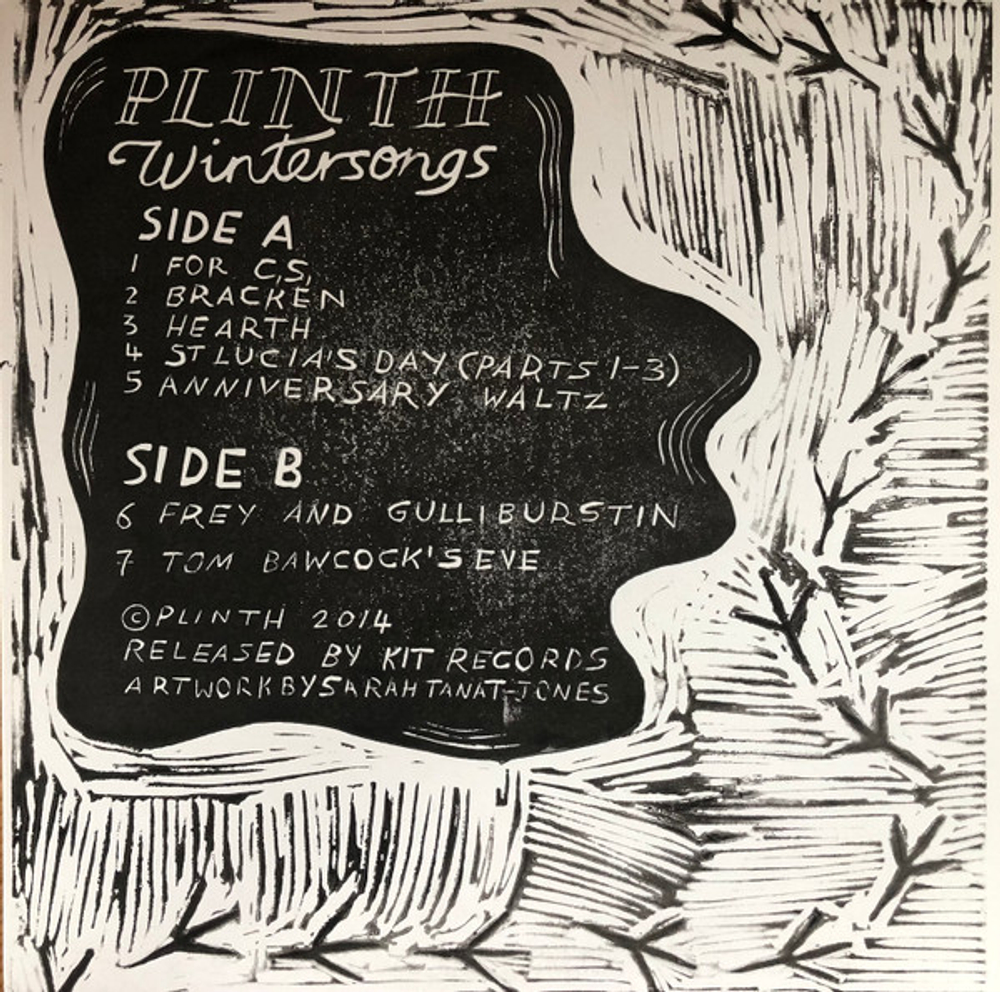 PLINTH
Wintersongs
SIDE A
1 FOR C,S,
2 BRACKEN
3 HEARTH
4 ST LUCIA'S DAY (PARTS 1-3)
5 ANNIVERSARY WALTZ
SIDE B
6 FREY AND GULLIBURSTIN
7 TOM BAWCOCK'S EVE
©PLINTH 2014
RELEASED BY KIT RECORDS
ARTWORK BY SARAH TANAT-JONES